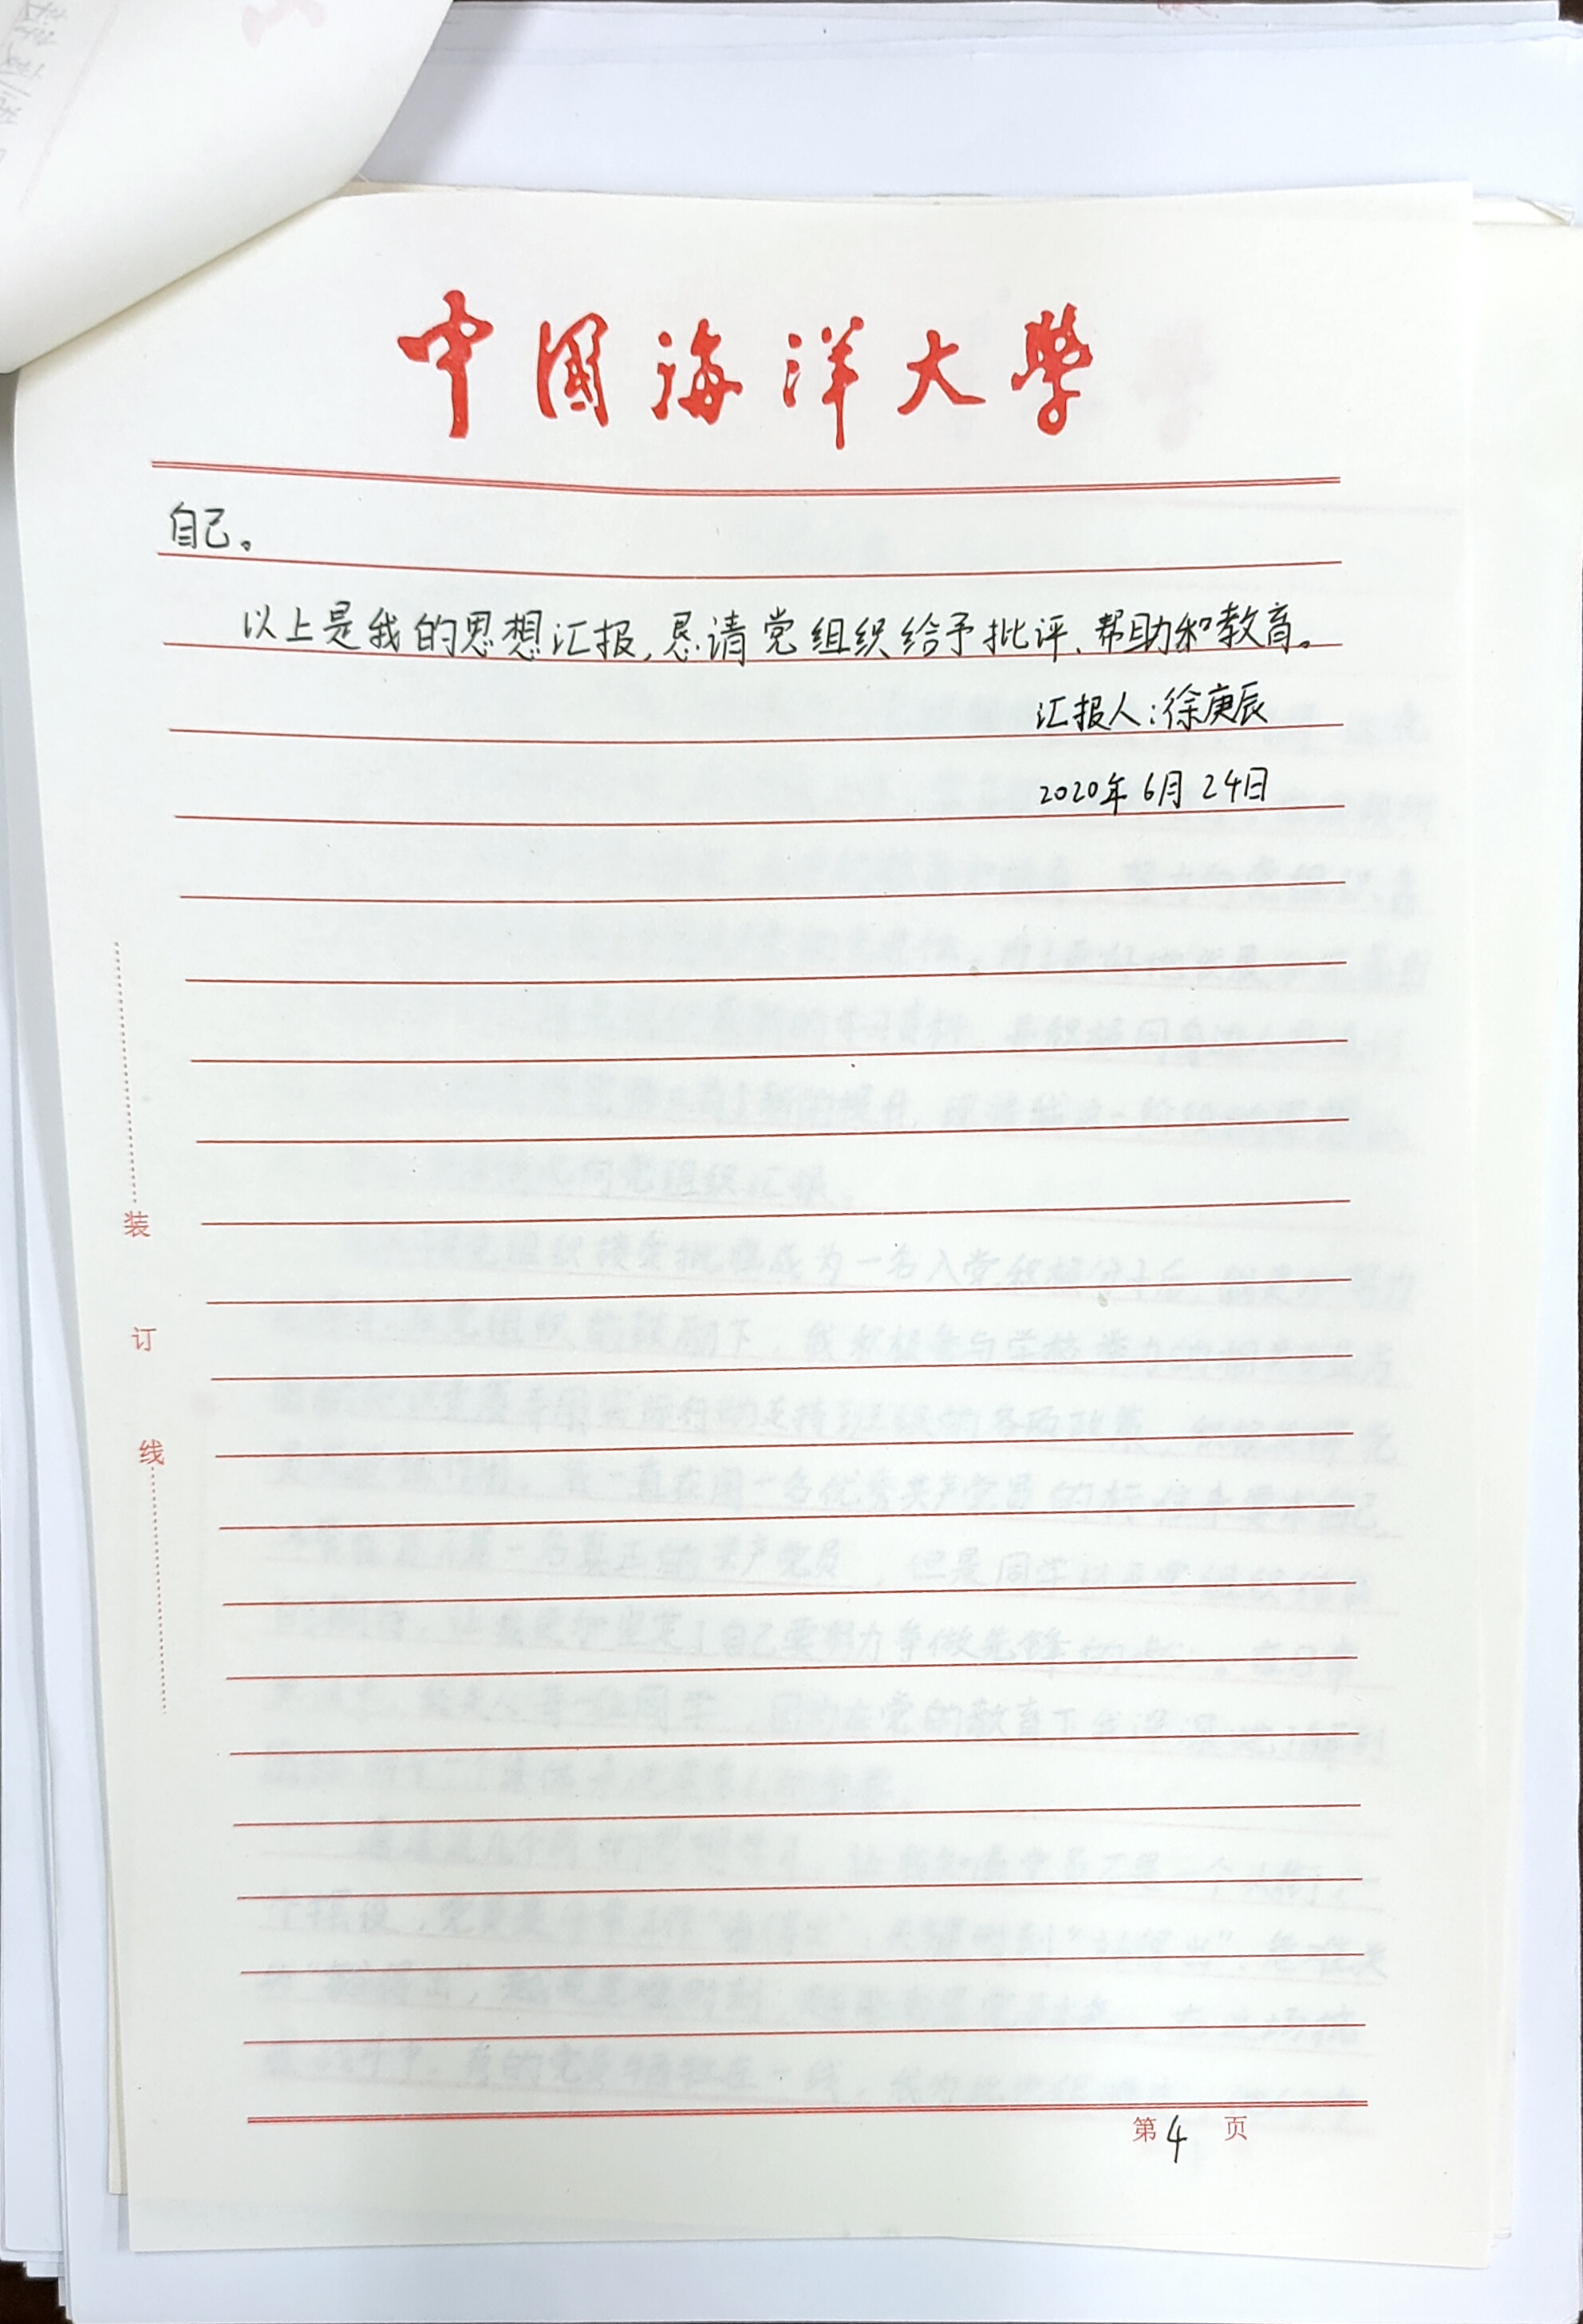 中国海洋大学
自己。
以上是我的思想汇报,恳请党组织给予批评、帮助和教育。
汇报人:徐庚辰
2020年6月24日
装
订
线
第4页